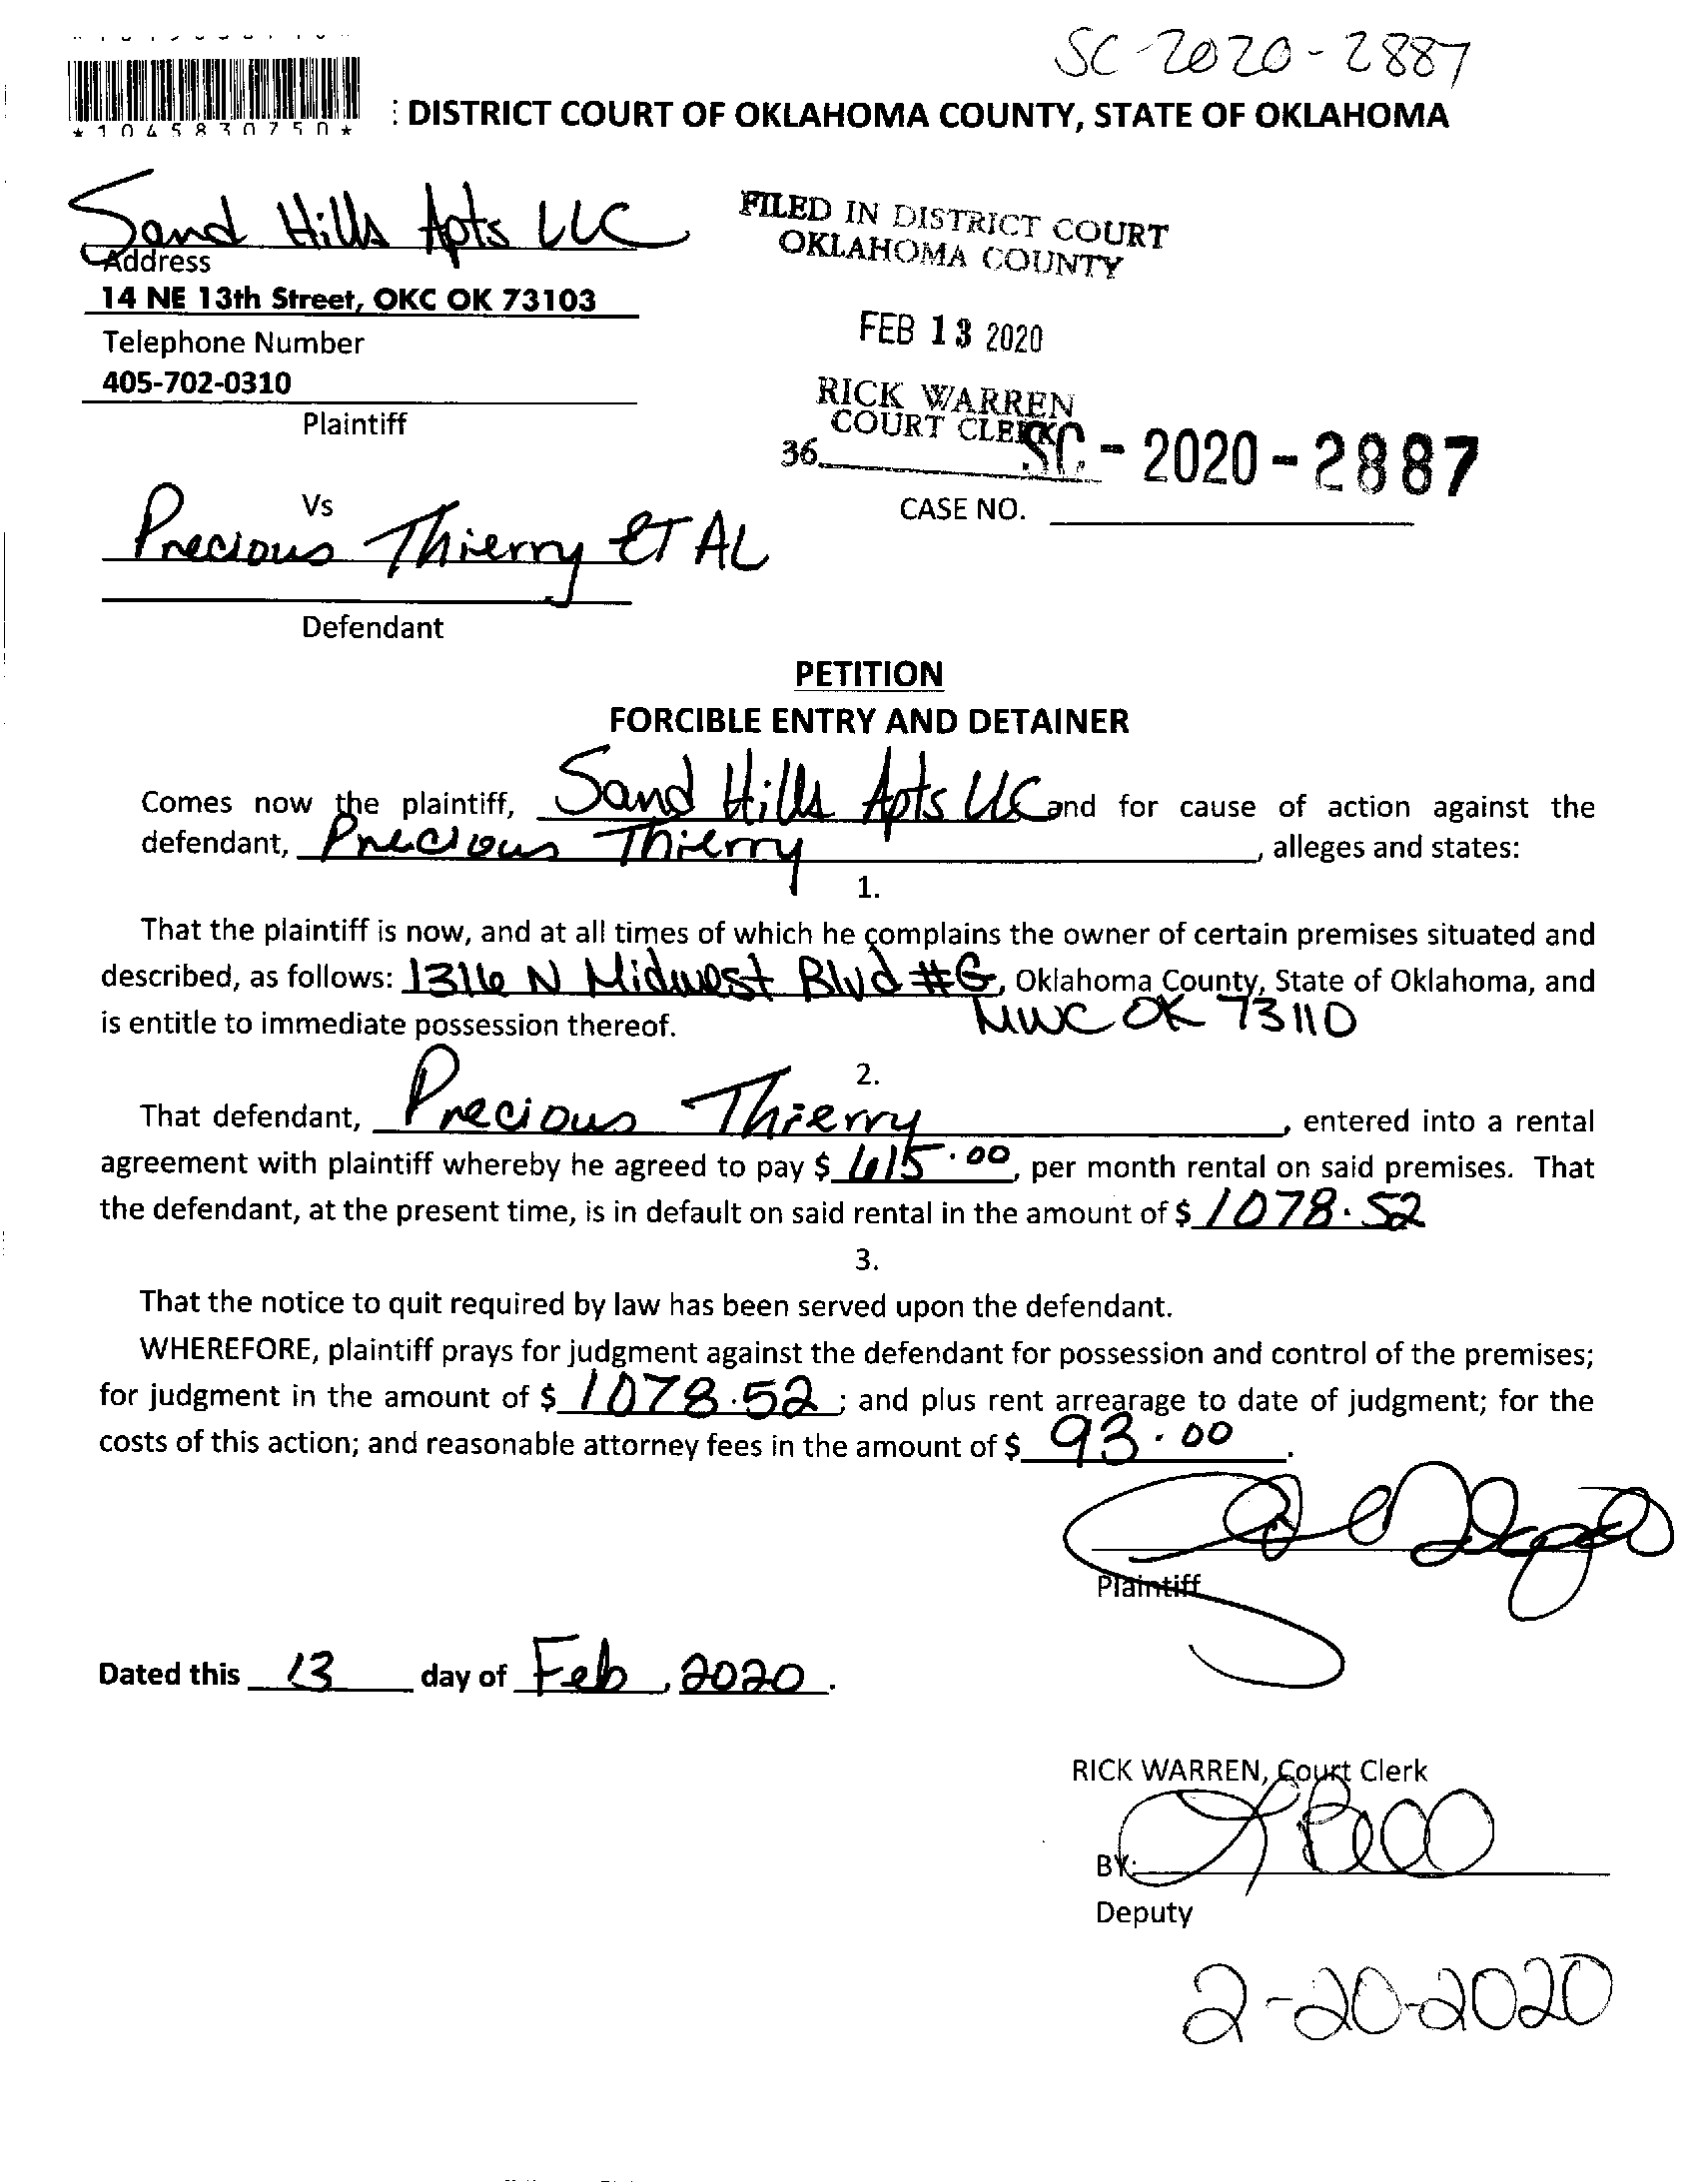 SC-2020-2887
*1045830750*
: DISTRICT COURT OF OKLAHOMA COUNTY, STATE OF OKLAHOMA
Sand Hills Apts LLC
Address
14 NE 13th Street, OKC OK 73103
Telephone Number
405-702-0310
Plaintiff
FILED IN DISTRICT COURT
OKLAHOMA COUNTY
FEB 13 2020
RICK WARREN
COURT CLERK
36
SC - 2020 - 2887
CASE NO.
Vs
Precious Thierry ET AL
Defendant
PETITION
FORCIBLE ENTRY AND DETAINER
Comes now the plaintiff, Sand Hills Apts LLC and for cause of action against the
defendant, Precious Thierry, alleges and states:
1.
That the plaintiff is now, and at all times of which he complains the owner of certain premises situated and
described, as follows: 1316 N Midwest Blvd #G, Oklahoma County, State of Oklahoma, and
is entitle to immediate possession thereof. MWC OK 73110
2.
That defendant, Precious Thierry, entered into a rental
agreement with plaintiff whereby he agreed to pay $ 615.00, per month rental on said premises. That
the defendant, at the present time, is in default on said rental in the amount of $ 1078.52
3.
That the notice to quit required by law has been served upon the defendant.
WHEREFORE, plaintiff prays for judgment against the defendant for possession and control of the premises;
for judgment in the amount of $ 1078.52; and plus rent arrearage to date of judgment; for the
costs of this action; and reasonable attorney fees in the amount of $ 93.00.
Plaintiff
Dated this 13 day of Feb, 2020.
RICK WARREN, Court Clerk
BY:
Deputy
2-20-2020